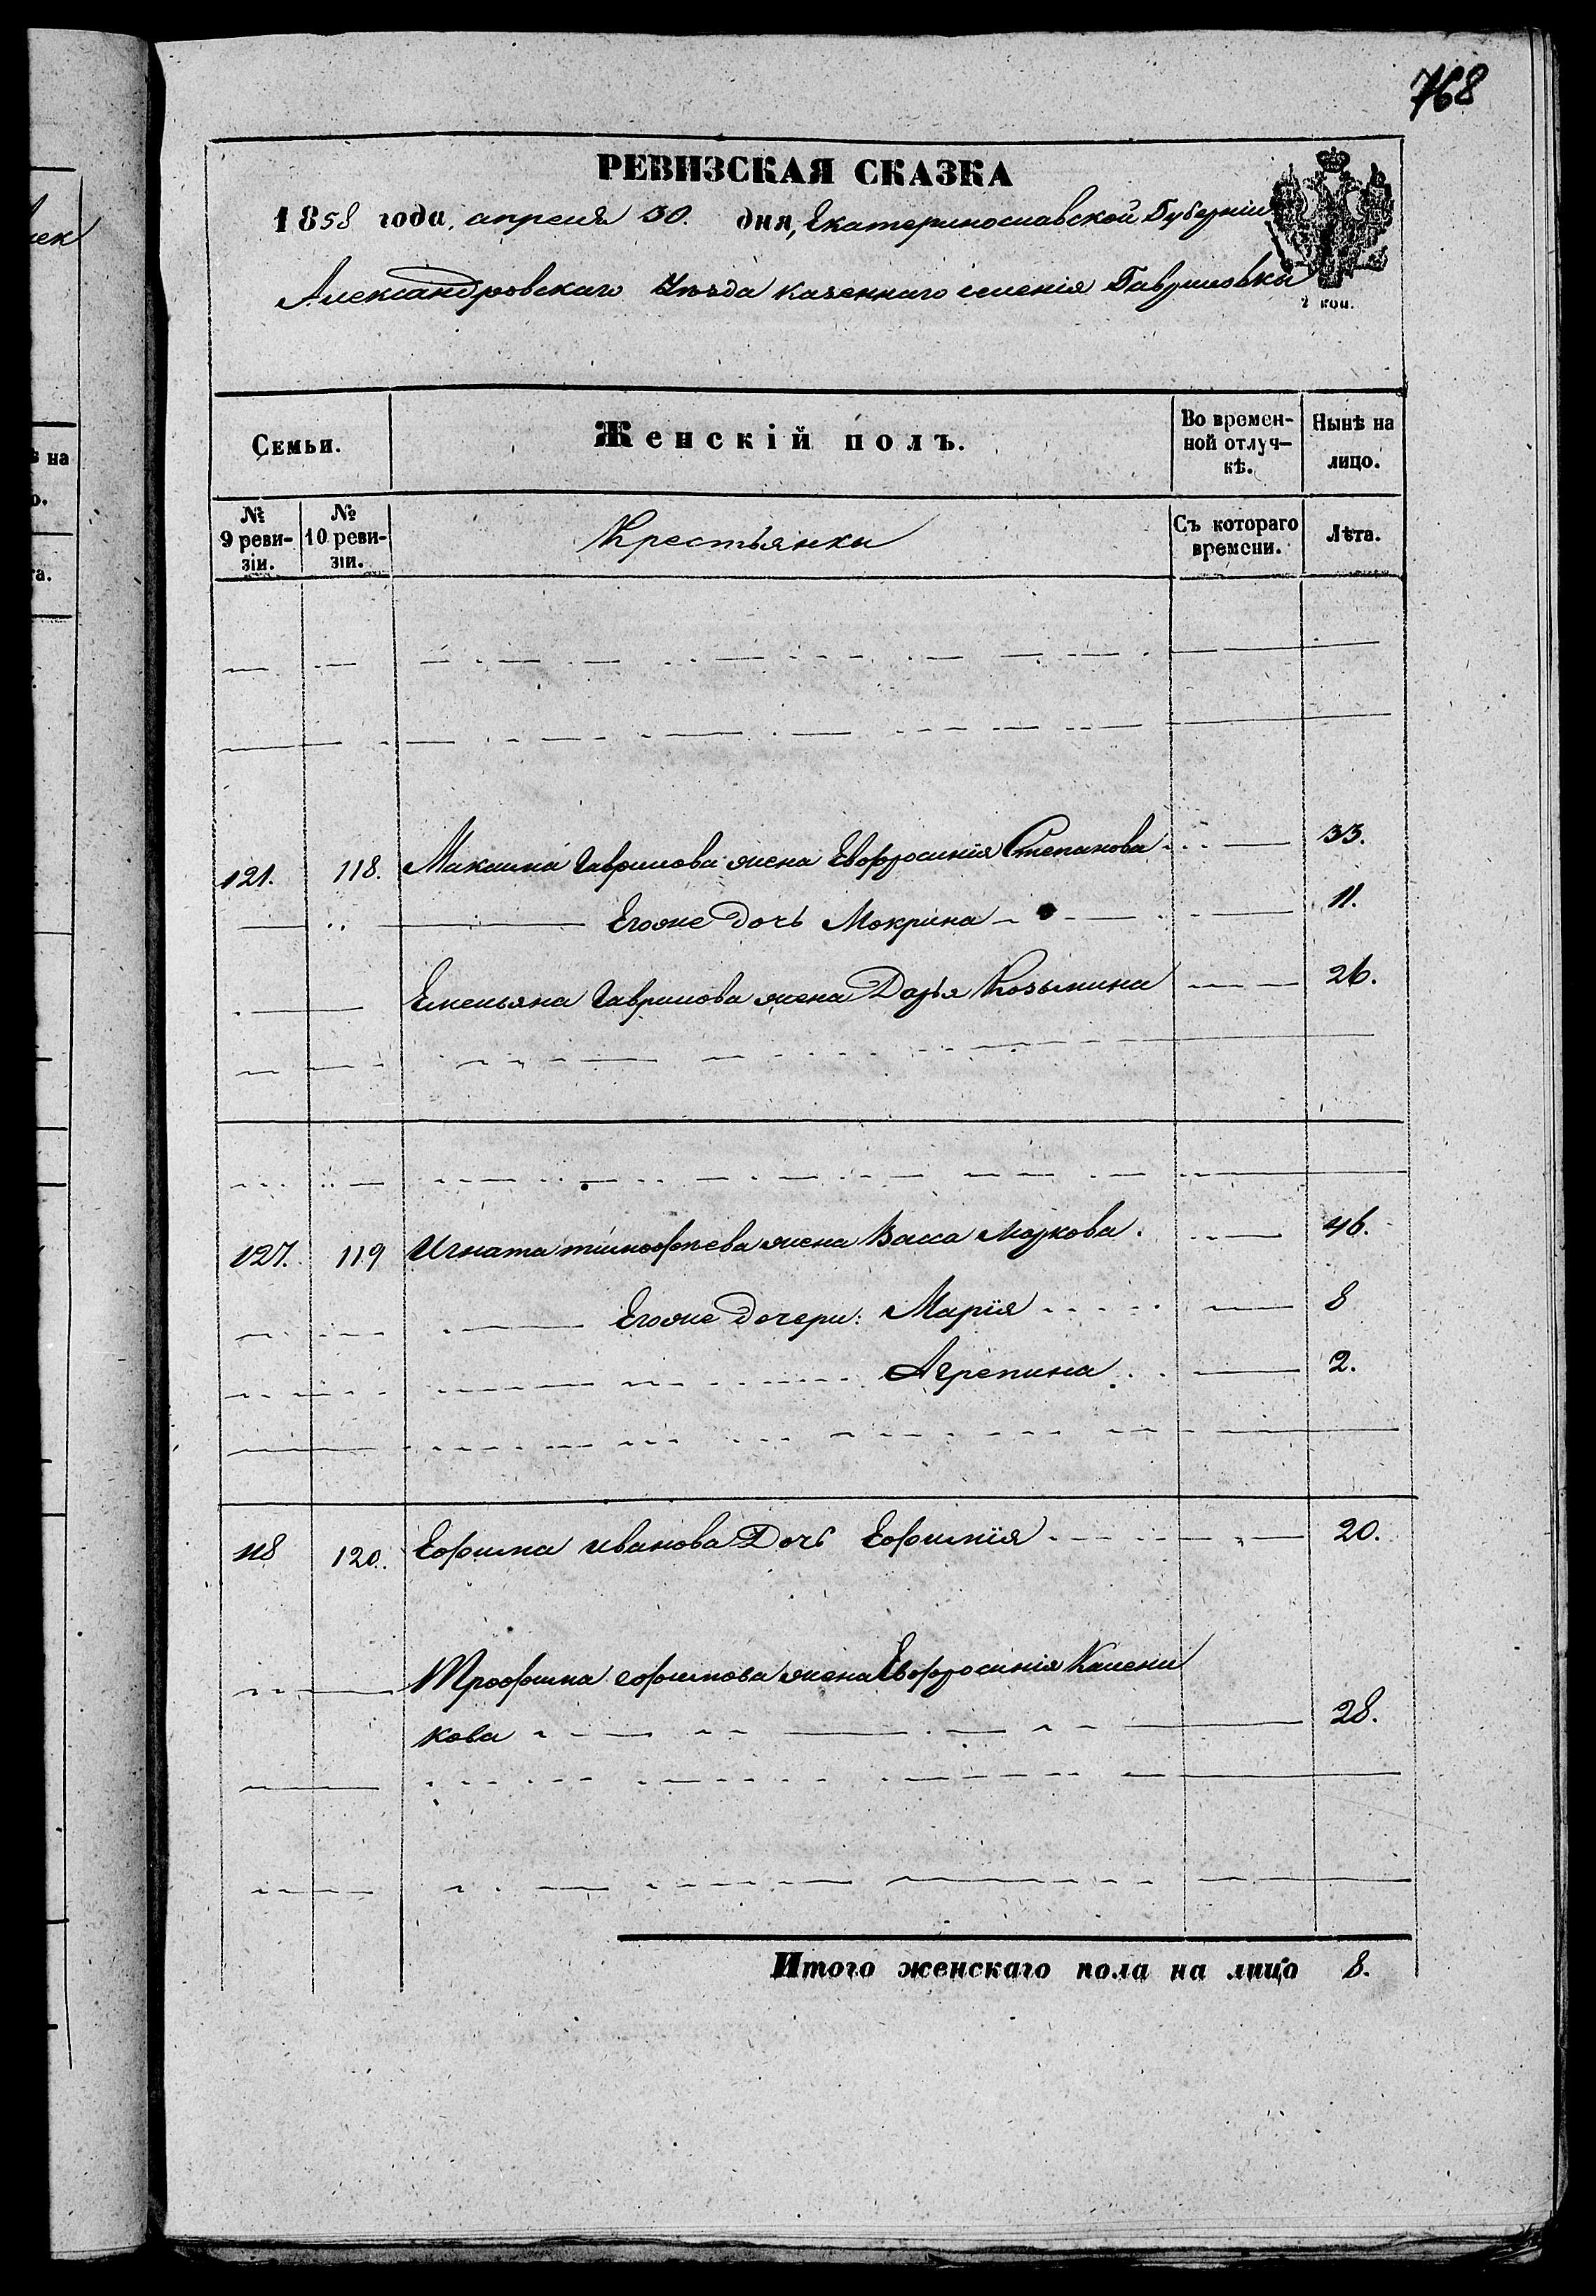 768
РЕВИЗСКАЯ СКАЗКА
1858 года, апреля 30 дня, Екатеринославской Губерніи
Александровскаго Уѣзда казеннаго селенія Гавриловки
2 коп.
Семьи. Женскій полъ. Во времен-ной отлуч-кѣ. Нынѣ на лицо.
№ 9 реви-зіи. № 10 реви-зіи. Крестьянки Съ котораго времени. Лѣта.
121. 118. Максима Гаврилова жена Евфросинія Степанова 33.
Егоже дочь Мокрина 11.
Емельяна Гаврилова жена Дарья Козьмина 26.
127. 119 Игната тимофѣева жена Васса Маркова 46.
Егоже дочери: Марія 8
Агрепина 2.
118 120. Ефима иванова Дочь Ефимія 20.
Трофима ефимова жена Евфросинія Калени
кова 28.
Итого женскаго пола на лицо 8.